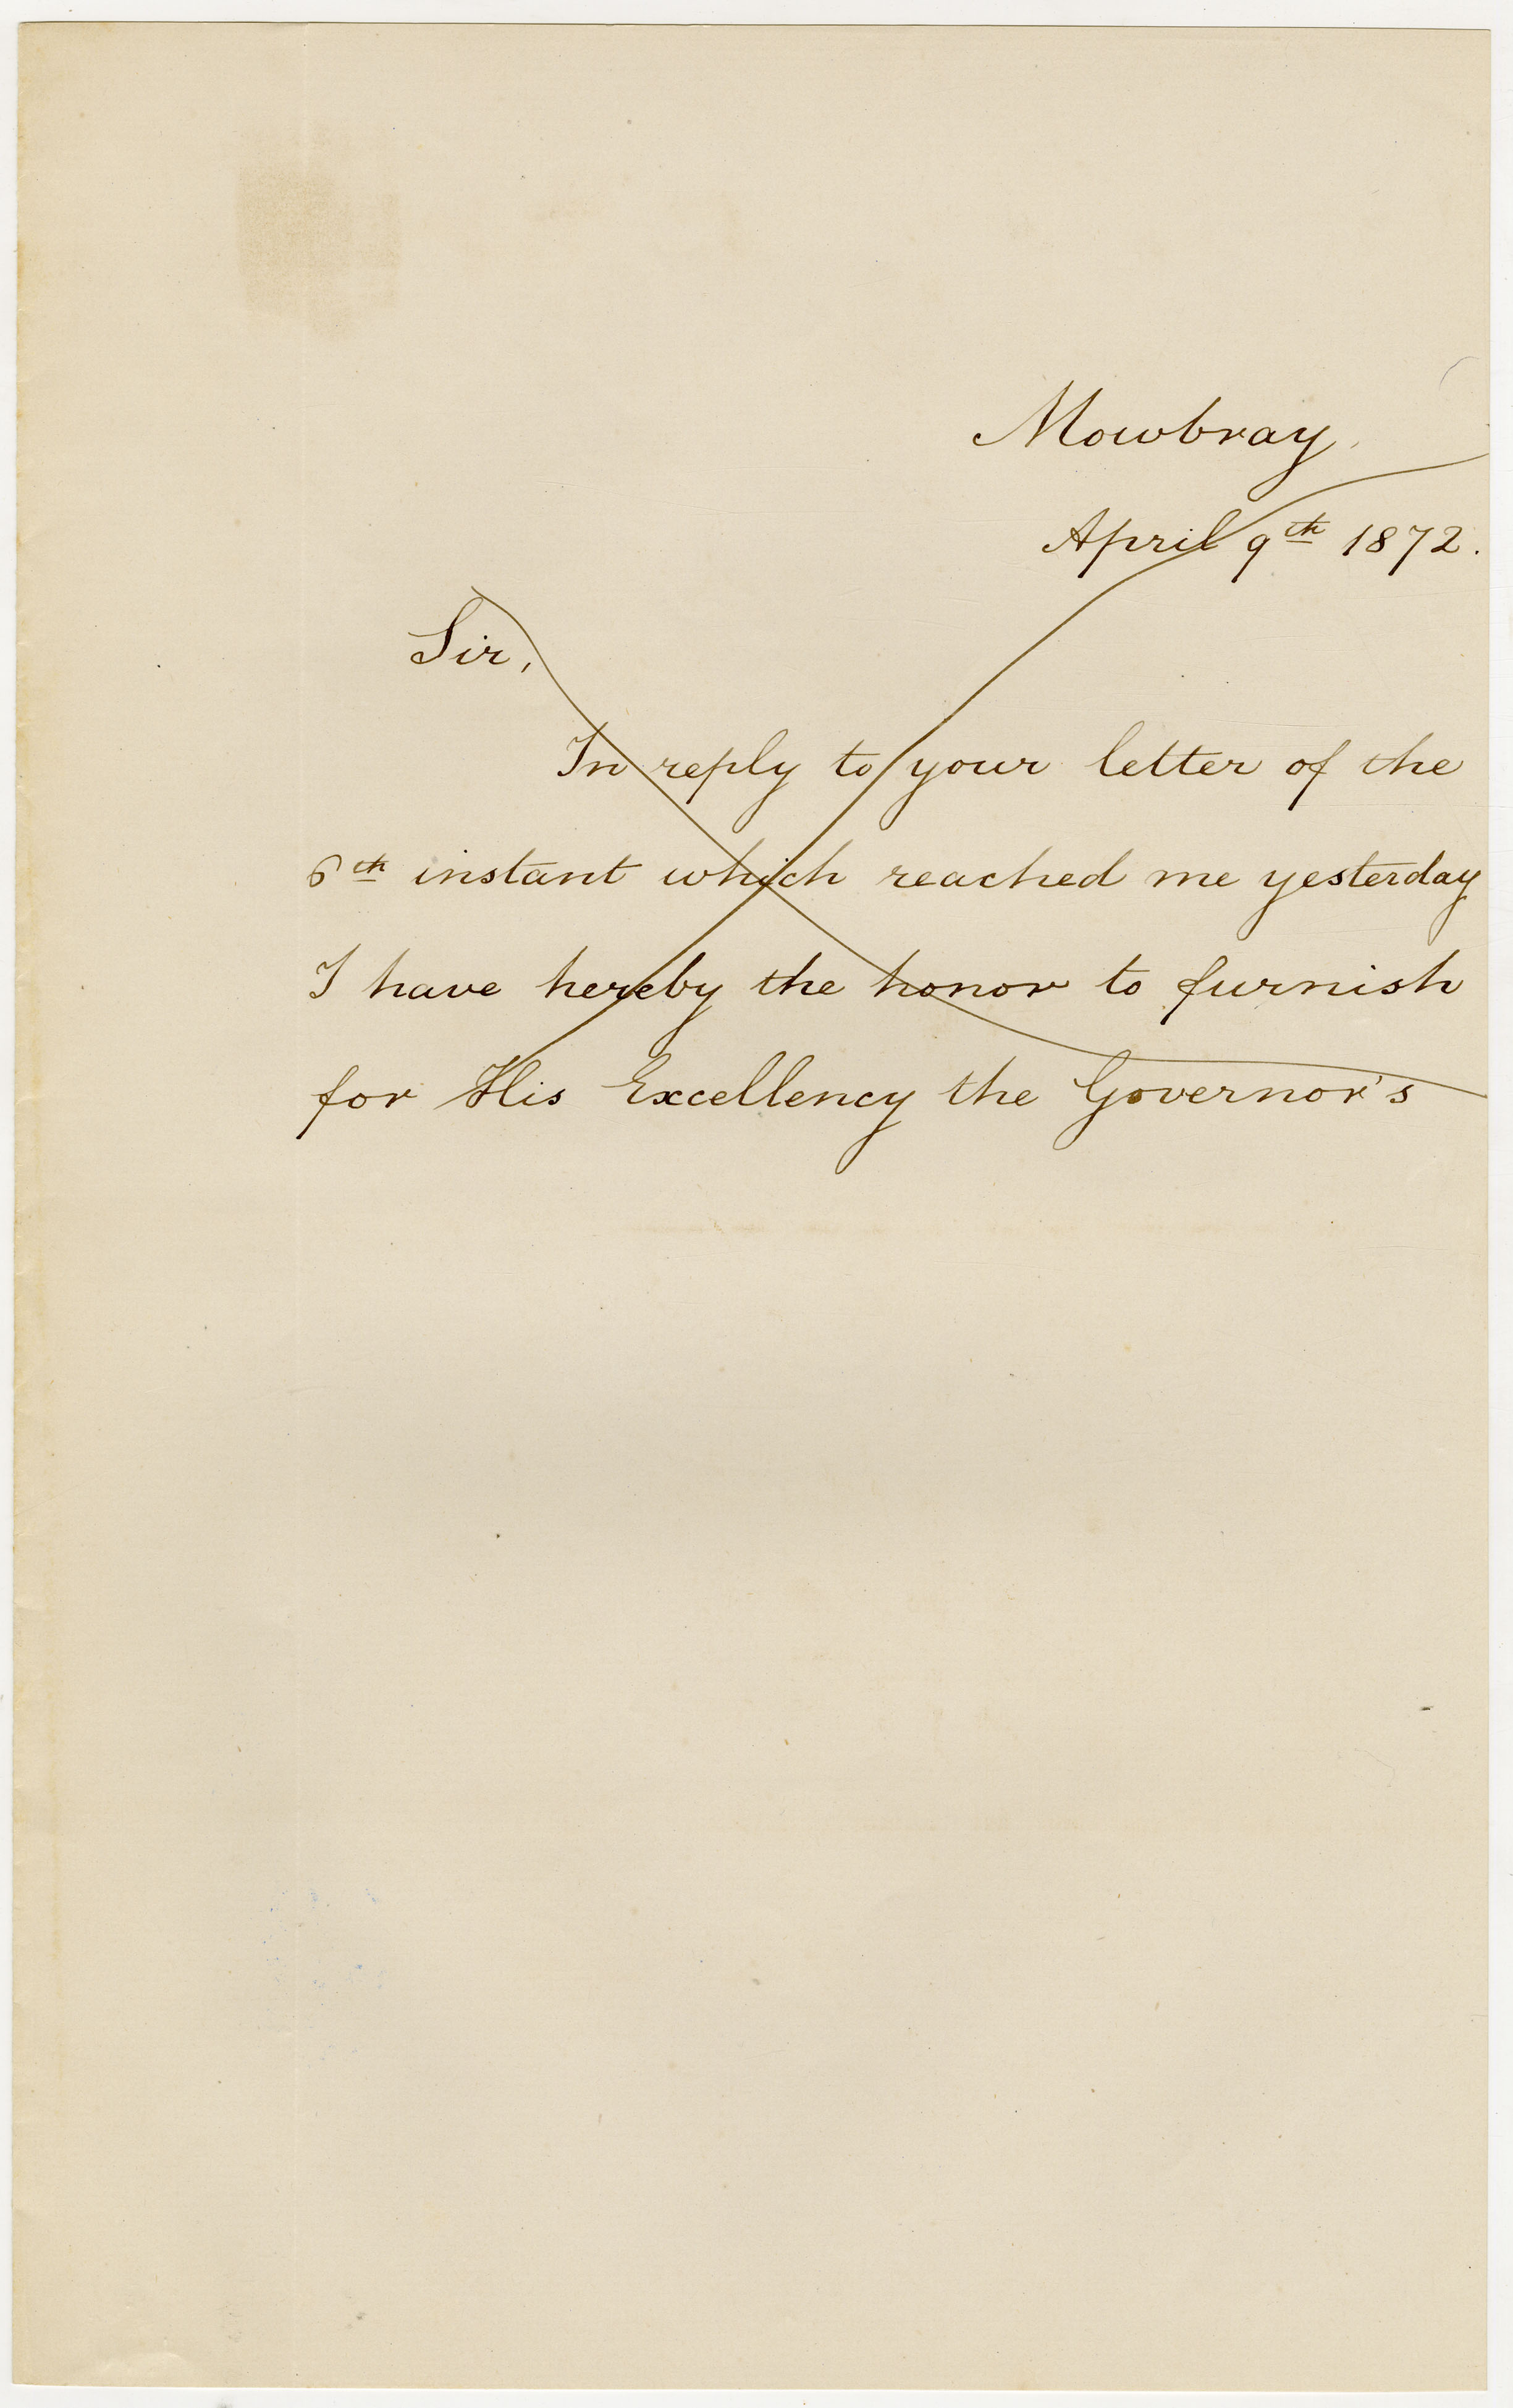 Mowbray.
April 9th 1872.
Sir,
In reply to your letter of the
6th instant which reached me yesterday
I have hereby the honor to furnish
for His Excellency the Governor's